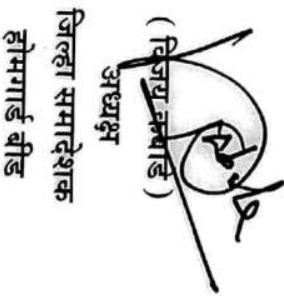 ( विजय कबाडे )
अध्यक्ष
जिल्हा समादेशक
होमगार्ड बीड